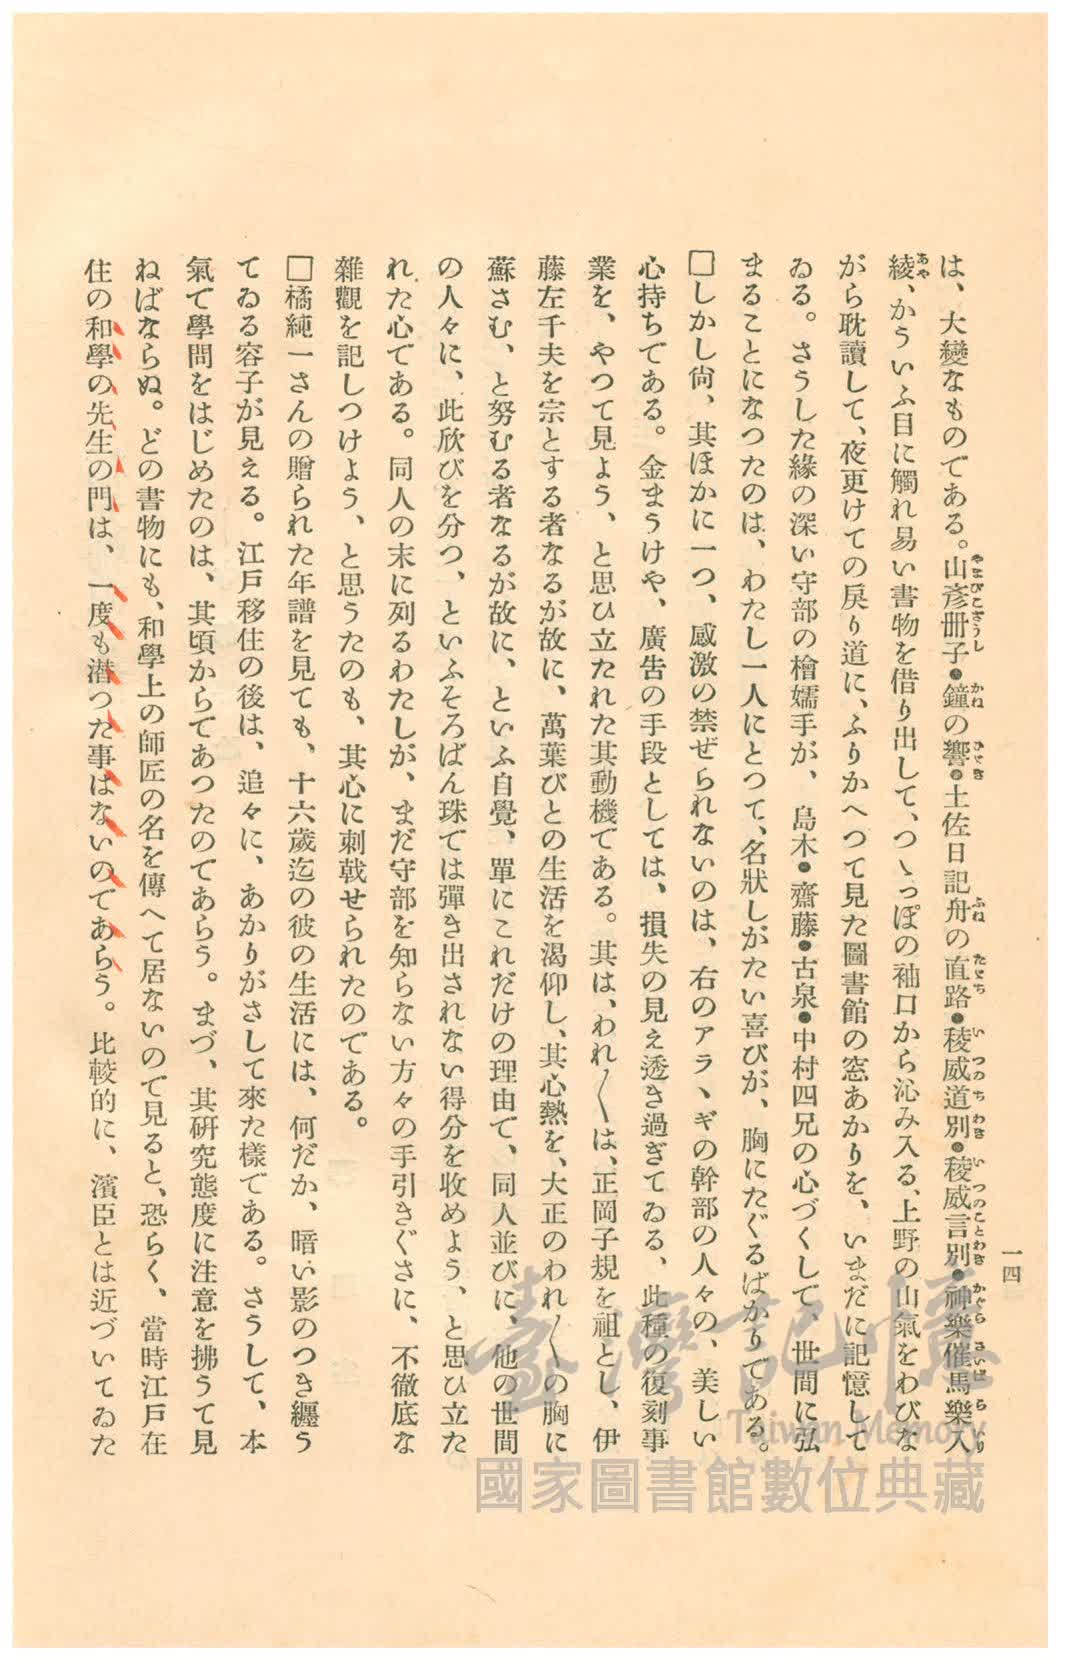 一四
は、大變なものである。山彦册子・鐘の響・土佐日記舟の直路・稜威道別・稜威言別・神樂催馬樂入
綾、かういふ目に觸れ易い書物を借り出して、つゝつぽの袖口から沁み入る、上野の山氣をわびな
がら耽讀して、夜更けての戻り道に、ふりかへつて見た圖書館の窓あかりを、いまだに記憶して
ゐる。さうした緣の深い守部の檜嬬手が、島木・齋藤・古泉・中村四兄の心づくしで、世間に弘
まることになつたのは、わたし一人にとつて、名狀しがたい喜びが、胸にたぐるばかりである。
□しかし尙、其ほかに一つ、感激の禁ぜられないのは、右のアラヽギの幹部の人々の、美しい
心持ちである。金まうけや、廣吿の手段としては、損失の見え透き過ぎてゐる、此種の復刻事
業を、やつて見よう、と思ひ立たれた其動機である。其は、われ〳〵は、正岡子規を祖とし、伊
藤左千夫を宗とする者なるが故に、萬葉びとの生活を渴仰し、其心熱を、大正のわれ〳〵の胸に
蘇さむ、と努むる者なるが故に、といふ自覺、單にこれだけの理由で、同人並びに、他の世間
の人々に、此欣びを分つ、といふそろばん珠では彈き出されない得分を收めよう、と思ひ立た
れた心である。同人の末に列るわたしが、まだ守部を知らない方々の手引きぐさに、不徹底な
雜觀を記しつけよう、と思うたのも、其心に刺戟せられたのである。
□橘純一さんの贈られた年譜を見ても、十六歲迄の彼の生活には、何だか、暗い影のつき纒う
てゐる容子が見える。江戶移住の後は、追々に、あかりがさして來た樣である。さうして、本
氣で學問をはじめたのは、其頃からであつたのであらう。まづ、其硏究態度に注意を拂うて見
ねばならぬ。どの書物にも、和學上の師匠の名を傳へて居ないので見ると、恐らく、當時江戶在
住の和學の先生の門は、一度も潜つた事はないのであらう。比較的に、濱臣とは近づいてゐた
やまびこざうし
かね
ひゞき
ふね
たゞち
いつのちわき
いつのことわき
かぐらさいばらいり
あや
臺灣記憶
Taiwan Memory
國家圖書館數位典藏